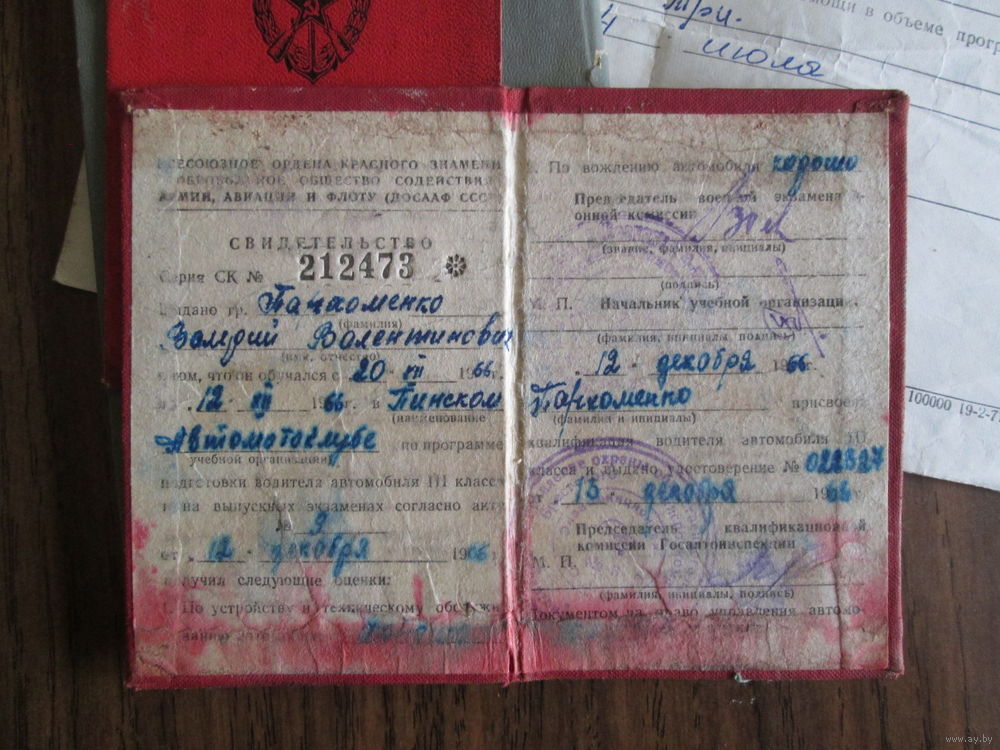 мощи в объеме прогр
три.
4 июля
ВСЕСОЮЗНОЕ ОРДЕНА КРАСНОГО ЗНАМЕНИ
ДОБРОВОЛЬНОЕ ОБЩЕСТВО СОДЕЙСТВИЯ
АРМИИ, АВИАЦИИ И ФЛОТУ (ДОСААФ СССР
СВИДЕТЕЛЬСТВО
Серия СК № 212473
Выдано гр. Пархоменко
(фамилия)
Валерий Валентинович
(имя, отчество)
в том, что он обучался с 20 1966 г.
12 XII 1966 г. в Пинском
(наименование
Автомотоклубе по программе
учебной организации)
подготовки водителя автомобиля III класса
и на выпускных экзаменах согласно акту
№ 9
от 12 декабря 1966
получил следующие оценки:
1. По устройству и техническому обслужи-
ванию
По вождению автомобиля хорошо
Председатель экзамена-
онной комиссии
(звание, фамилия, инициалы)
(подпись)
М. П. Начальник учебной организации
(фамилия, инициалы, подпись)
12 декабря 1966.
Пархоменко присвоена
(фамилия и инициалы)
квалификация водителя автомобиля
класса и выдано удостоверение № 022327
от 13 декабря 1966
Председатель квалификационной
комиссии Госавтоинспекции
М. П.
(фамилия, инициалы, подпись)
Документом на право управления автомо-
100000 19-2-7
www.ay.by